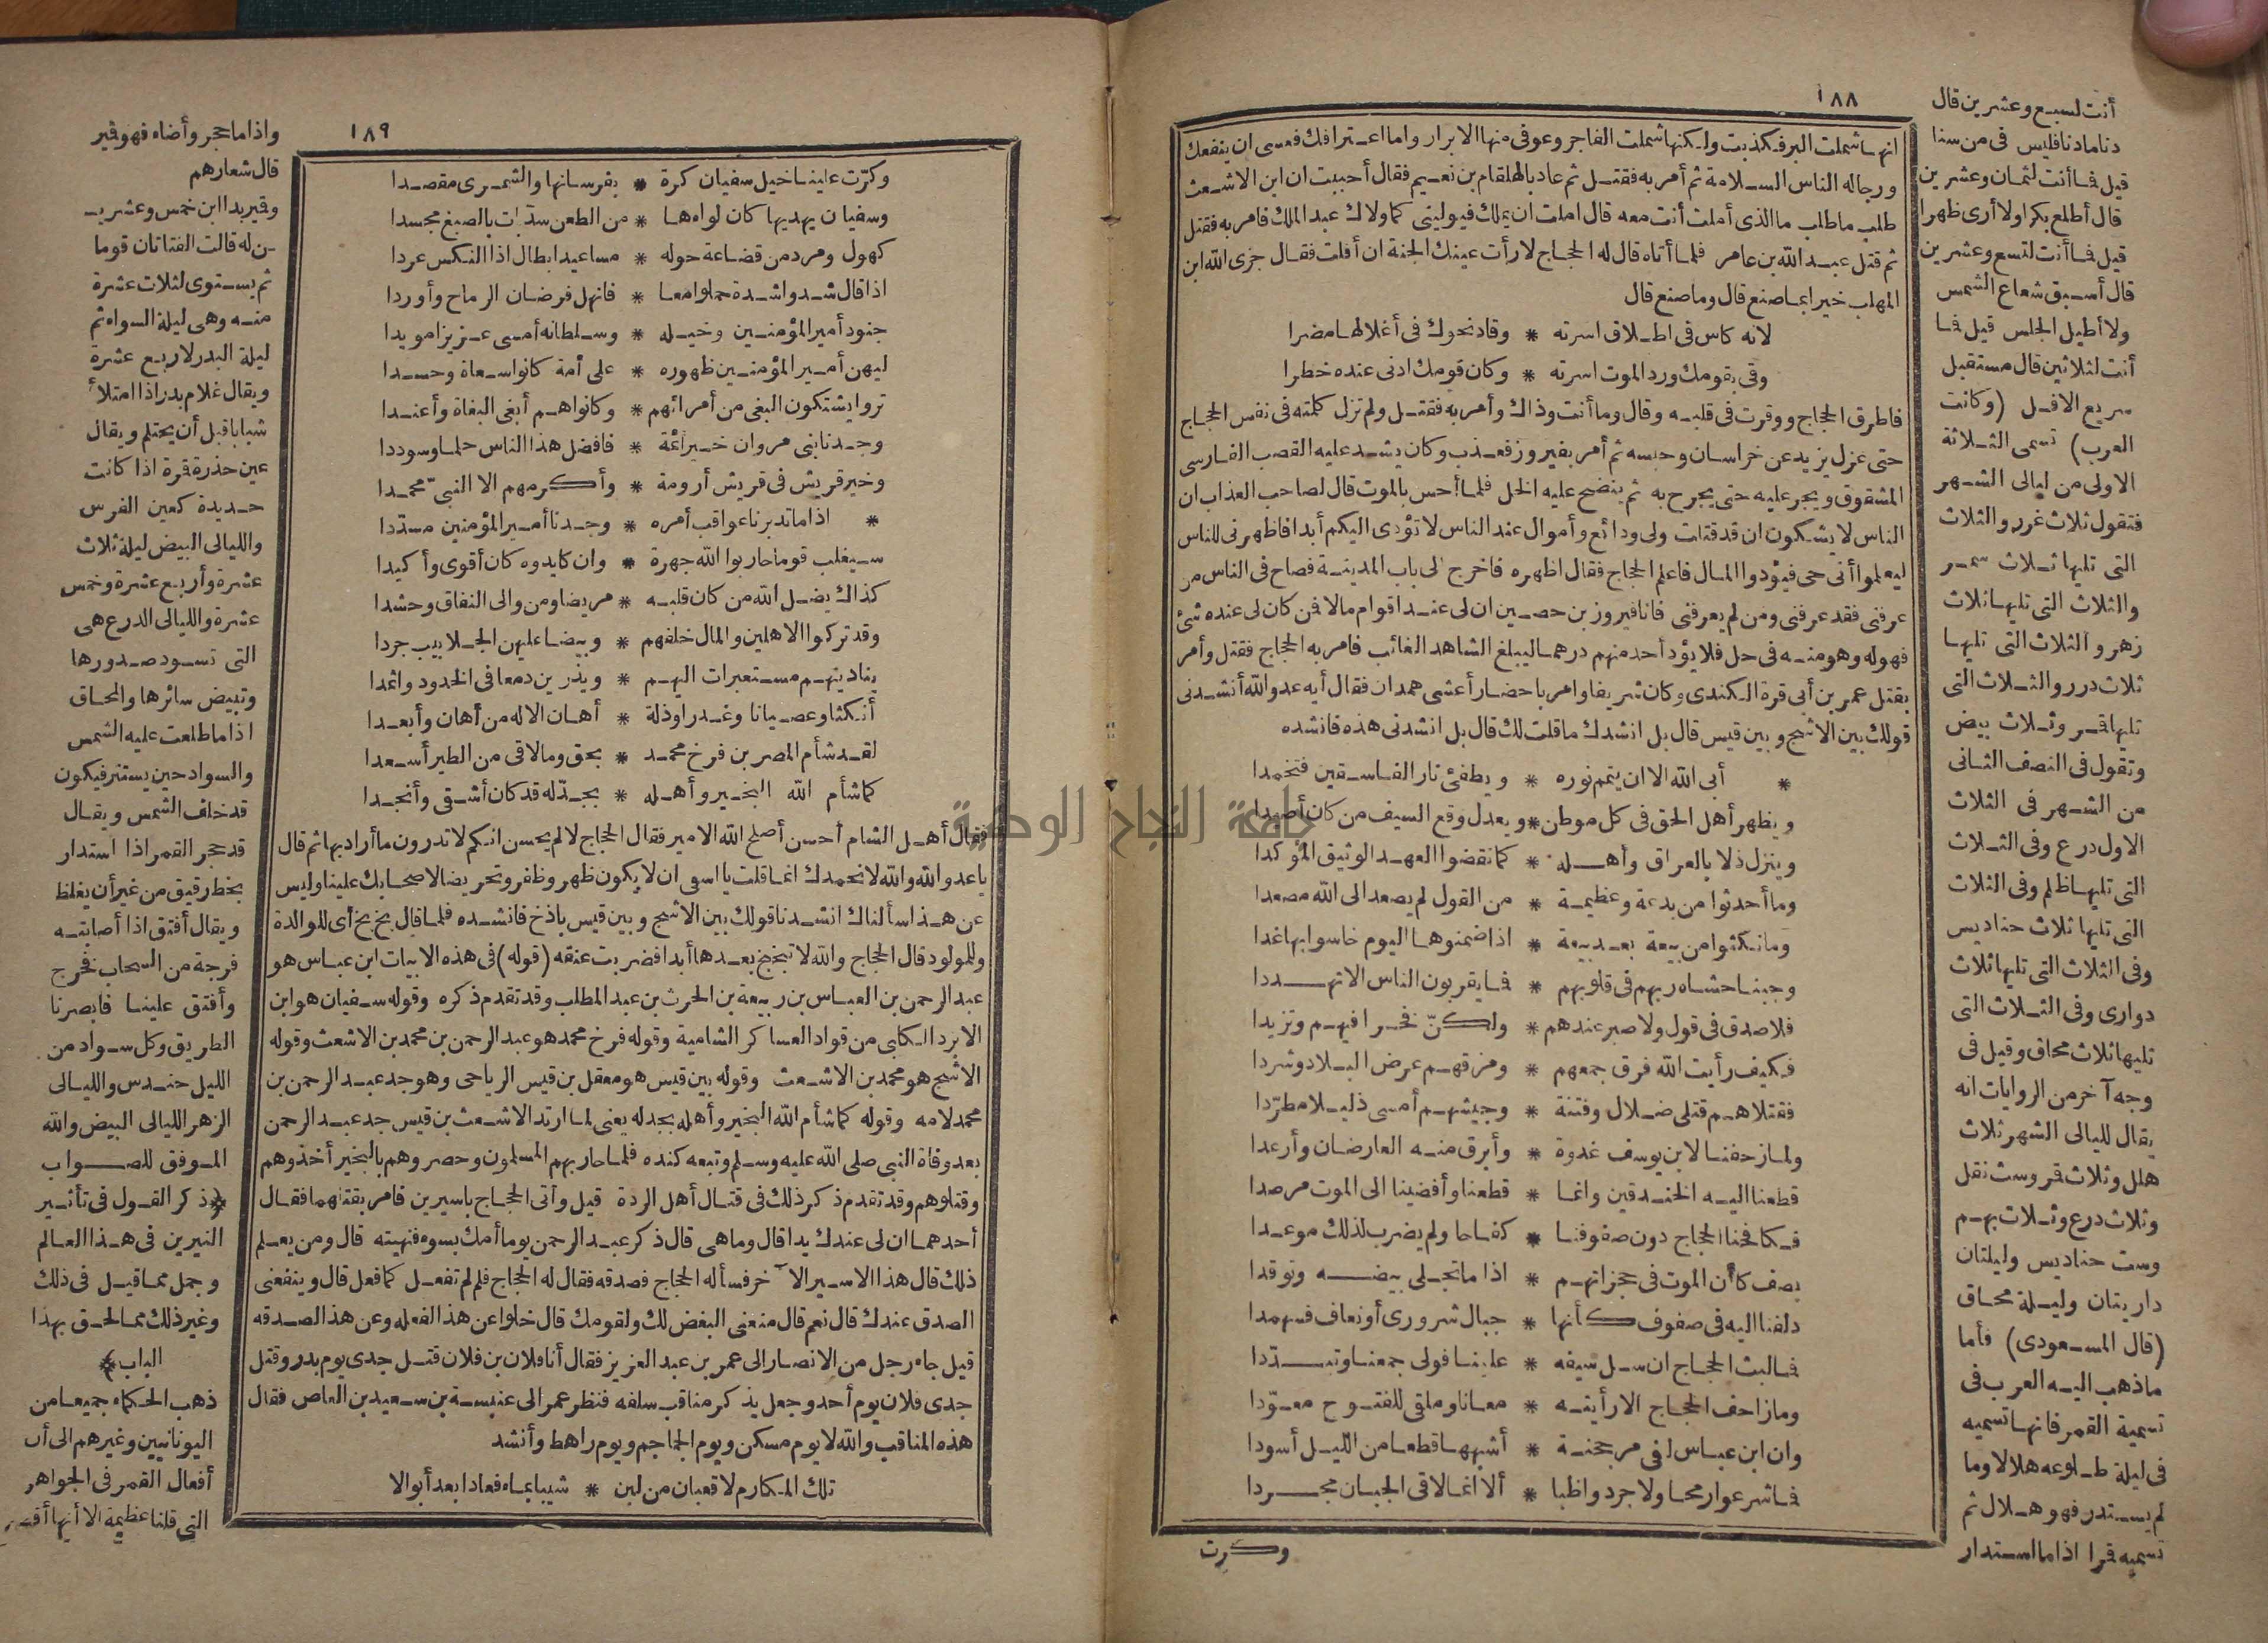 ١٨٨
انها شملت البر فكذبت ولكنها شملت الفاجر وعوفى منها الابرار واما اعترافك فعسى ان ينفعك
ورجاله الناس السلامة ثم أمر به فقتل ثم عاد بالهلقام بن نعيم فقال أحببت ان ابن الاشعث
طلب ماطلب ما الذى أملت أنت معه قال املت ان يملك فيولينى كما ولاك عبد الملك فامر به فقتل
ثم قتل عبد الله بن عامر فلما أتاه قال له الحجاج لا رأت عينك الجنة ان أفلت فقال جزى الله ابن
المهلب خيرا بما صنع قال وما صنع قال
لانه كاس فى اطلاق اسرته * وقاد نحوك فى أغلالها مضرا
وقى بقومك ورد الموت اسرته * وكان قومك ادنى عنده خطرا
فاطرق الحجاج ووقرت فى قلبه وقال وما أنت وذاك وأمر به فقتل ولم تزل كلمته فى نفس الحجاج
حتى عزل يزيد عن خراسان وحبسه ثم أمر بفيروز فعذب وكان يشد عليه القصب الفارسى
المشقوق ويجر عليه حتى يجرح به ثم ينضح عليه الخل فلما أحس بالموت قال لصاحب العذاب ان
الناس لا يشكون ان قد قتلت ولى ودائع وأموال عند الناس لا تؤدى اليكم أبدا فاظهرنى للناس
ليعلموا أنى حى فيؤدوا المال فاعلم الحجاج فقال اظهره فاخرج الى باب المدينة فصاح فى الناس من
عرفنى فقد عرفنى ومن لم يعرفنى فانا فيروز بن حصين ان لى عند اقوام مالا فمن كان لى عنده شئ
فهوله وهو منه فى حل فلا يؤد أحد منهم درهما ليبلغ الشاهد الغائب فامر به الحجاج فقتل وأمر
بقتل عمر بن أبى قرة الكندى وكان شريفا وامر باحضار أعشى همدان فقال أيه عدو الله أنشدنى
قولك بين الاشج وبين قيس قال بل انشدك ما قلت لك قال بل انشدنى هذه فانشده
* أبى الله الا ان يتم نوره * ويطفئ نار الفاسقين فتخمدا
ويظهر أهل الحق فى كل موطن * ويعدل وقع السيف من كان أصيدا
وينزل ذلا بالعراق وأهله * كما نقضوا العهد الوثيق المؤكدا
وما أحدثوا من بدعة وعظيمة * من القول لم يصعد الى الله مصعدا
ومانكثوا من بيعة بعد بيعة * اذا ضمنوها اليوم خاسوا بها غدا
وجبنا حشاه ربهم فى قلوبهم * فما يقربون الناس الا تهددا
فلا صدق فى قول ولا صبر عندهم * ولكنّ فخرا فيهم وتزيدا
فكيف رأيت الله فرق جمعهم * ومزقهم عرض البلاد وشردا
فقتلاهم قتلى ضلال وفتنة * وجيشهم أمسى ذليلا مطرّدا
ولما زحفنا لابن يوسف غدوة * وأبرق منه العارضان وأرعدا
قطعنا اليه الخندقين وانما * قطعنا وأفضينا الى الموت مرصدا
فكافحنا الحجاج دون صفوفنا * كفاحا ولم يضرب لذلك موعدا
بصف كأن الموت فى حجزاتهم * اذا ماتجلى بيضه وتوقدا
دلفنا اليه فى صفوف كأنها * جبال شرورى أو نعاف فسهمدا
فما لبث الحجاج ان سل سيفه * علينا فولى جمعنا وتبددّا
ومازاحف الحجاج الا رأيته * معانا وملقى للفتوح معوّدا
وان ابن عباس لفى مرجحنة * أشبهها قطعا من الليل أسودا
فما شرعوا رمحا ولا جردوا ظبا * ألا انما لاقى الجبان مجردا
وكرت
أنت لسبع وعشرين قال
دنا مادنا فليس فى من سنا
قيل فما أنت لثمان وعشرين
قال أطلع بكرا ولا أرى ظهرا
قيل فما أنت لتسع وعشرين
قال أسبق شعاع الشمس
ولا أطيل الجلس قيل فما
أنت لثلاثين قال مستقبل
سريع الافل (وكانت
العرب) تسمى الثلاثة
الاولى من ليالى الشهر
فتقول ثلاث غرر والثلاث
التى تليها ثلاث سمر
والثلاث التى تليها ثلاث
زهر والثلاث التى تليها
ثلاث درر والثلاث التى
تليها قمر وثلاث بيض
وتقول فى النصف الثانى
من الشهر فى الثلاث
الاول درع وفى الثلاث
التى تليها ظلم وفى الثلاث
التى تليها ثلاث حناديس
وفى الثلاث التى تليها ثلاث
دوارى وفى الثلاث التى
تليها ثلاث محاق وقيل فى
وجه آخر من الروايات انه
يقال لليالى الشهر ثلاث
هلل وثلاث قمر وست نقل
وثلاث درع وثلاث بهم
وست حناديس وليلتان
داريتان وليلة محاق
(قال المسعودى) فأما
ماذهب اليه العرب فى
تسمية القمر فانها تسميه
فى ليلة طلوعه هلالا وما
لم يستدر فهو هلال ثم
تسميه قمرا اذا ما استدار
١٨٩
وكرّت علينا خيل سفيان كرة * بفرسانها والشمرى مقصدا
وسفيان يهديها كان لواءها * من الطعن سدّ بات بالصبغ مجسدا
كهول ومرد من قضاعة حوله * مساعيد ابطال اذا النكس عردا
اذا قال شدوا شدة حملوا معا * فانهل فرضان الرماح وأوردا
جنود أمير المؤمنين وخيله * وسلطانه أمسى عزيزا مويدا
ليهن أمير المؤمنين ظهوره * على أمة كانوا سعاة وحسدا
تروا يشتكون البغى من أمرائهم * وكانوا هم أبغى البغاة وأعندا
وجدنا بنى مروان خير أئمة * فافضل هذا الناس حلما وسوددا
وخير قريش فى قريش أرومة * وأكرمهم الا النبىّ محمدا
* اذا ما تدبرنا عواقب أمره * وجدنا أمير المؤمنين مسدّدا
سيغلب قوما حاربوا الله جهرة * وان كايدوه كان أقوى وأكيدا
كذاك يضل الله من كان قلبه * مريضا ومن والى النفاق وحشدا
وقد تركوا الاهلين والمال خلفهم * وبيضا عليهن الجلابيب جردا
يناديهم مستعبرات اليهم * ويذرين دمعا فى الخدود واثمدا
أنكثا وعصيانا وغدرا وذلة * أهان الاله من أهان وأبعدا
لقد شأم المصر بن فرخ محمد * بحق ومالاقى من الطير أسعدا
كما شأم الله النجير وأهله * بجدّ له قد كان أشقى وأنجدا
فقال أهل الشام أحسن أصلح الله الامير فقال الحجاج لا لم يحسن انكم لا تدرون ما أراد بها ثم قال
ياعدو الله والله لا نحمدك انما قلت يا اسفى ان لا يكون ظهر وظفر وتحريضا لاصحابك علينا وليس
عن هذا سألناك انشدنا قولك بين الاشج وبين قيس باذخ فانشده فلما قال بخ بخ أى للوالدة
وللمولود قال الحجاج والله لا تبخبخ بعدها أبدا فضربت عنقه (قوله) فى هذه الابيات ابن عباس هو
عبد الرحمن بن العباس بن ربيعة بن الحرث بن عبد المطلب وقد تقدم ذكره وقوله سفيان هو ابن
الابرد الكلبى من قواد العساكر الشامية وقوله فرخ محمد هو عبد الرحمن بن محمد بن الاشعث وقوله
الاشج هو محمد بن الاشعث وقوله بين قيس هو معقل بن قيس الرياحى وهو جد عبد الرحمن بن
محمد لامه وقوله كما شأم الله النجير وأهله بجد له يعنى لما ارتد الاشعث بن قيس جد عبد الرحمن
بعد وفاة النبى صلى الله عليه وسلم وتبعه كنده فلما حاربهم المسلمون وحصروهم بالنجير أخذوهم
وقتلوهم وقد تقدم ذكر ذلك فى قتال أهل الردة قيل وأتى الحجاج باسيرين فامر بقتلهما فقال
أحدهما ان لى عندك يدا قال وماهى قال ذكر عبد الرحمن يوما أمك بسوء فنهيته قال ومن يعلم
ذلك قال هذا الاسير الآخر فسأله الحجاج فصدقه فقال له الحجاج فلم لم تفعل كما فعل قال وينفعنى
الصدق عندك قال نعم قال منعنى البغض لك ولقومك قال خلوا عن هذا لفعله وعن هذا لصدقه
قيل جاء رجل من الانصار الى عمر بن عبد العزيز فقال أنا فلان بن فلان قتل جدى يوم بدر وقتل
جدى فلان يوم أحد وجعل يذكر مناقب سلفه فنظر عمر الى عنبسة بن سعيد بن العاص فقال
هذه المناقب والله لا يوم مسكن ويوم الجماجم ويوم راهط وأنشد
تلك المكارم لاقعبان من لبن * شيبا بماء فعادا بعد أبوالا
واذا ما حجر وأضاء فهو قمير
قال شعارهم
وقمير بدا ابن خمس وعشريـ
ـن له قالت الفتاتان قوما
ثم يستوى لثلاث عشرة
منه وهى ليلة السواء ثم
ليلة البدر لاربع عشرة
ويقال غلام بدر اذا امتلأ
شبابا قبل أن يحتلم ويقال
عين حذرة قرة اذا كانت
حديدة كعين الفرس
والليالى البيض ليلة ثلاث
عشرة وأربع عشرة وخمس
عشرة والليالى الدرع هى
التى تسود صدورها
وتبيض سائرها والمحاق
اذا ما طلعت عليه الشمس
والسواد حين يستتر فيكون
قد خلف الشمس ويقال
قد حجر القمر اذا استدار
بخط رقيق من غير أن يغلظ
ويقال أفتق اذا أصابته
فرجة من السحاب فخرج
وأفتق علينا فابصرنا
الطريق وكل سواد من
الليل حندس والليالى
الزهر الليالى البيض والله
الموفق للصواب
﴿ذكر القول فى تأثير
النيرين فى هذا العالم
وجمل مما قيل فى ذلك
وغير ذلك مما لحق بهذا
الباب﴾
ذهب الحكماء جميعا من
اليونانيين وغيرهم الى أن
أفعال القمر فى الجواهر
التى قلنا عظيمة الا أنها أقصر
جامعة النجاح الوطنية